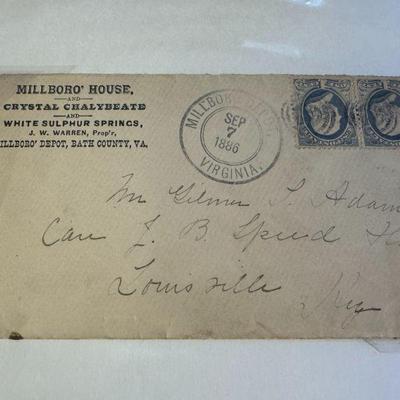 MILLBORO' HOUSE,
AND
CRYSTAL CHALYBEATE
AND
WHITE SULPHUR SPRINGS,
J. W. WARREN, Prop'r,
MILLBORO' DEPOT, BATH COUNTY, VA.
MILLBORO
SEP
7
1886
VIRGINIA.
Mr Gilmer S. Adam
Care J. B. Speed
Louisville
Key